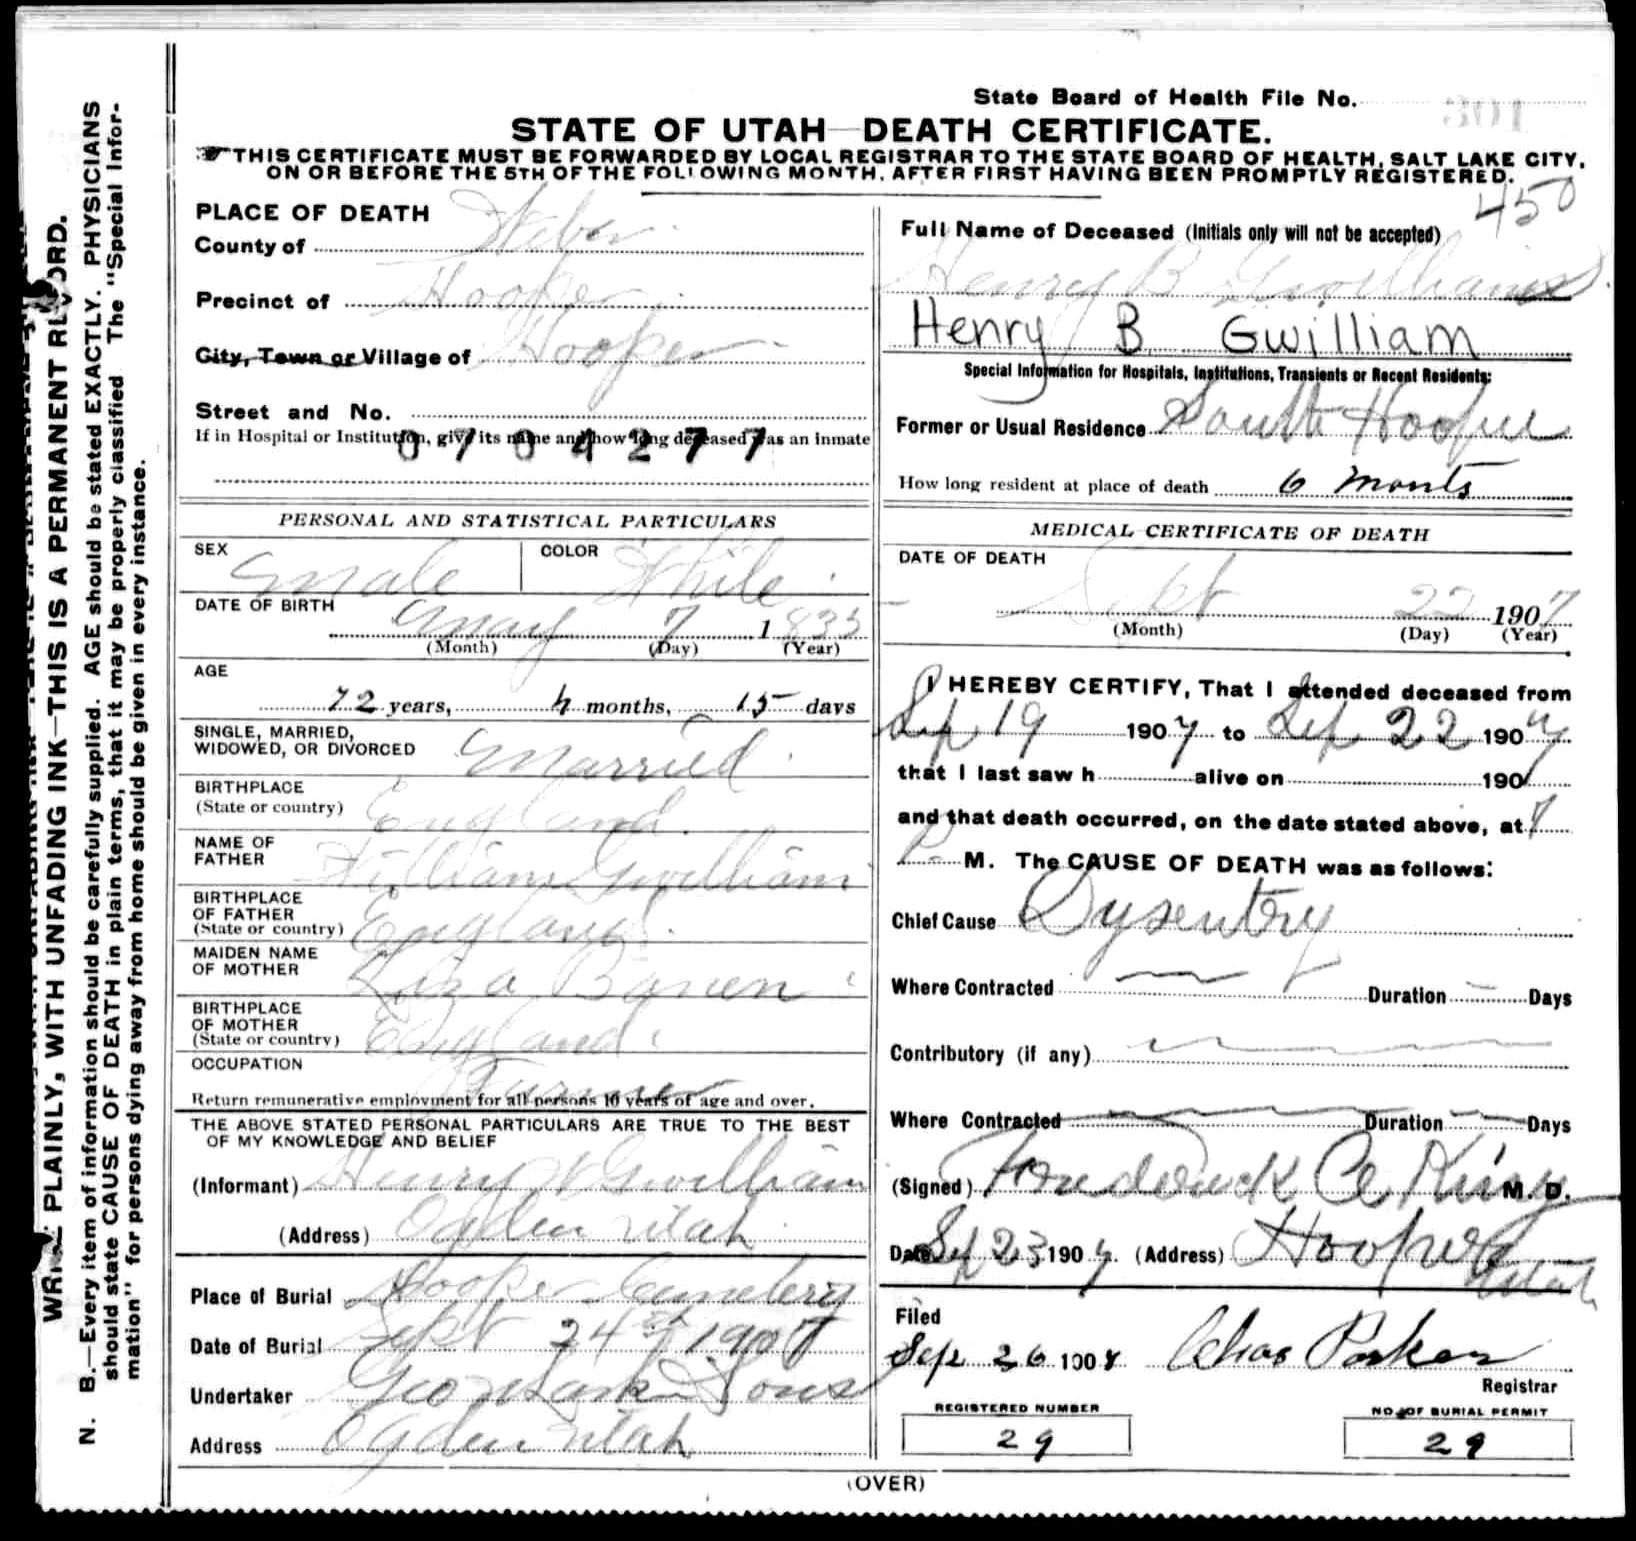 State Board of Health File No.
301
STATE OF UTAH—DEATH CERTIFICATE.
THIS CERTIFICATE MUST BE FORWARDED BY LOCAL REGISTRAR TO THE STATE BOARD OF HEALTH, SALT LAKE CITY,
ON OR BEFORE THE 5TH OF THE FOLLOWING MONTH, AFTER FIRST HAVING BEEN PROMPTLY REGISTERED.
450
PLACE OF DEATH
County of Weber
Precinct of Hooper
City, Town or Village of Hooper
Street and No.
If in Hospital or Institution, give its name and how long deceased was an inmate
0704277
PERSONAL AND STATISTICAL PARTICULARS
SEX Male COLOR White
DATE OF BIRTH
May 7 1833
(Month) (Day) (Year)
AGE
72 years, 4 months, 15 days
SINGLE, MARRIED,
WIDOWED, OR DIVORCED Married
BIRTHPLACE
(State or country) England
NAME OF
FATHER William Gwilliam
BIRTHPLACE
OF FATHER
(State or country) England
MAIDEN NAME
OF MOTHER
BIRTHPLACE
OF MOTHER
(State or country) England
OCCUPATION
Farmer
Return remunerative employment for all persons 10 years of age and over.
THE ABOVE STATED PERSONAL PARTICULARS ARE TRUE TO THE BEST
OF MY KNOWLEDGE AND BELIEF
(Informant) Henry W Gwilliam
(Address) Ogden Utah
Place of Burial Hooper Cemetery
Date of Burial Sept 24th 1907
Undertaker Sons
Address Ogden Utah
Full Name of Deceased (Initials only will not be accepted)
Henry B Gwilliams
Henry B Gwilliam
Special Information for Hospitals, Institutions, Transients or Recent Residents:
Former or Usual Residence South Hooper
How long resident at place of death 6 monts
MEDICAL CERTIFICATE OF DEATH
DATE OF DEATH
Sept 22 1907
(Month) (Day) (Year)
I HEREBY CERTIFY, That I attended deceased from
Sep 19 1907 to Sep 22 1907
that I last saw h alive on 190
and that death occurred, on the date stated above, at 7
P M. The CAUSE OF DEATH was as follows:
Chief Cause Dysentry
Where Contracted Duration Days
Contributory (if any)
Where Contracted Duration Days
(Signed) Frederick A King M. D.
Date Sep 23 1907 (Address) Hooper
Utah
Filed
Sep 26 190 Chas Parker
Registrar
REGISTERED NUMBER
29
NO. OF BURIAL PERMIT
29
(OVER)
WRITE PLAINLY, WITH UNFADING INK—THIS IS A PERMANENT RECORD.
N. B.—Every item of information should be carefully supplied. AGE should be stated EXACTLY. PHYSICIANS
should state CAUSE OF DEATH in plain terms, that it may be properly classified The "Special Infor-
mation" for persons dying away from home should be given in every instance.